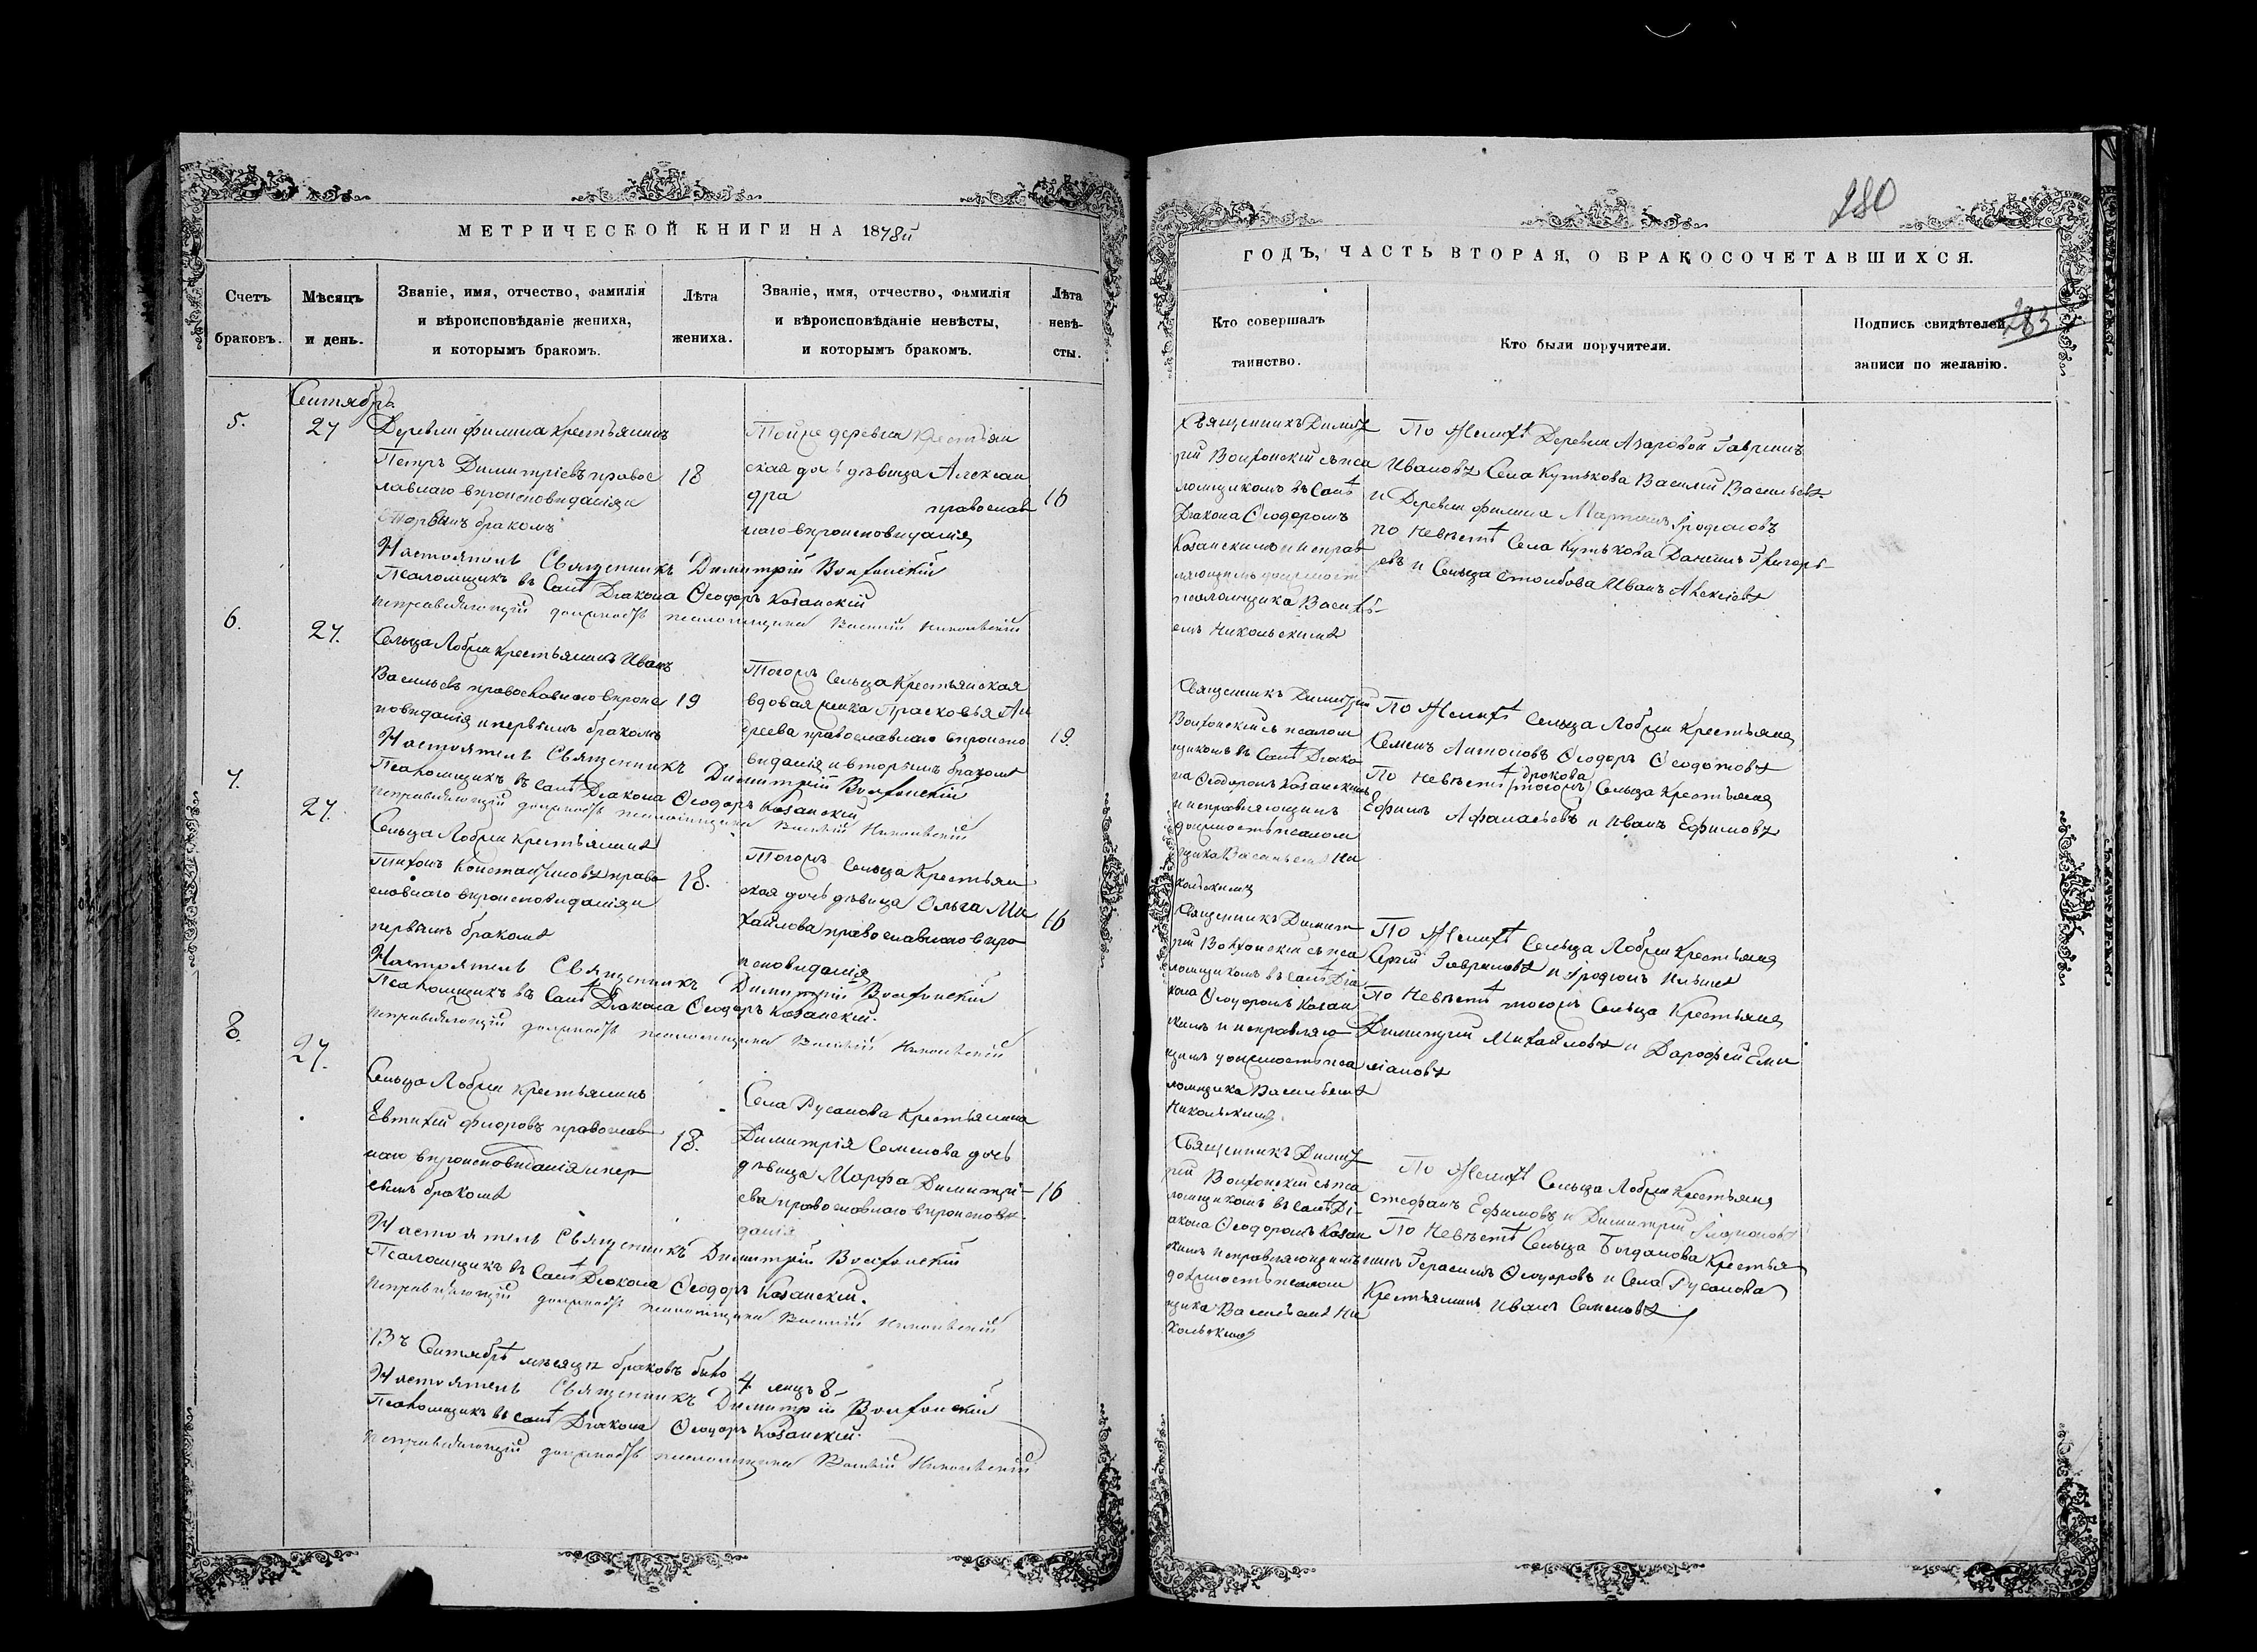 МЕТРИЧЕСКОЙ КНИГИ НА 1878й
Счетъ браковъ.
Мѣсяцъ и день.
Званіе, имя, отчество, фамилія
и вѣроисповѣданіе жениха,
и которымъ бракомъ.
Лѣта жениха.
Званіе, имя, отчество, фамилія
и вѣроисповѣданіе невѣсты,
и которымъ бракомъ.
Лѣта невѣ-
сты.
Сентябрь
5.
27
Деревни Филина крестьянинъ
Петръ Димитріевъ правос
лавнаго вѣроисповѣданія и
бракомъ
18
Тойже деревни крестьян
ская дочь дѣвица Алексан
дра православ
наго вѣроисповѣданія
16
Настоятель Священникъ Димитрій Волхонскій
Псаломщикъ въ санѣ Діакона Ѳеодоръ Казанскій
Исправляющій должность псаломщика Василій Никольскій
6.
27.
Сельца Лобжи крестьянинъ Иванъ
Васильевъ православнаго вѣроис
повѣданія и первымъ бракомъ
19
Тогожъ Сельца Крестьянская
вдовая женка Прасковья Ан
дреева православнаго вѣроиспо
вѣданія и вторымъ бракомъ
19.
Настоятель Священникъ Димитрій Волхонскій
Псаломщикъ въ санѣ Діакона Ѳеодоръ Казанскій
Исправляющій должность псаломщика Василій Никольскій
7.
27.
Сельца Лобжи Крестьянинъ
Тихонъ Константиновъ право
славнаго вѣроисповѣданія и
первымъ бракомъ
18.
Тогожъ Сельца Крестьян
ская дочь дѣвица Ольга Ми
хайлова православнаго вѣро
исповѣданія
16
Настоятель Священникъ Димитрій Волхонскій
Псаломщикъ въ санѣ Діакона Ѳеодоръ Казанскій.
Исправляющій должность псаломщика Василій Никольскій
8.
27.
Сельца Лобжи Крестьянинъ
Евтихій Ѳеодоровъ православ
наго вѣроисповѣданія и пер
вымъ бракомъ
18.
Села Русанова Крестьянина
Димитрія Семенова дочь
дѣвица Марфа Димитрі-
ева православнаго вѣроисповѣ-
данія
16
Настоятель Священникъ Димитрій Волхонскій
Псаломщикъ въ санѣ Діакона Ѳеодоръ Казанскій.
Исправляющій должность псаломщика Василій Никольскій
Въ Сентябрѣ мѣсяцѣ браковъ было 4 лицъ 8
Настоятель Священникъ Димитрій Волхонскій
Псаломщикъ въ санѣ Діакона Ѳеодоръ Казанскій.
Исправляющій должность псаломщика Василій Никольскій
280
ГОДЪ, ЧАСТЬ ВТОРАЯ, О БРАКОСОЧЕТАВШИХСЯ.
283
Кто совершалъ
таинство.
Кто были поручители.
Подпись свидѣтелей
записи по желанію.
Священникъ Димит
рій Волхонскій съ пса
ломщикомъ въ санѣ
Діакона Ѳеодоромъ
Казанскимъ и исправ
ляющимъ должность
псаломщика Василь-
емъ Никольскимъ
По Женихѣ Деревни Азаровой Гавріилъ
Ивановъ Села Кутькова Василій Васильевъ
и Деревни Филина Мартинъ
по Невѣстѣ Села Кутькова Даніилъ Григорь-
евъ и Сельца Столбова Иванъ Алексіевъ
Священникъ Димитрій
Волхонскій съ псалом
щикомъ въ санѣ Діако
на Ѳеодоромъ Казанскимъ
и исправляющимъ
должность псалом
щика Васильемъ Ни
кольскимъ
По Женихѣ Сельца Лобжи Крестьяне
Семенъ Антоновъ Ѳеодоръ Ѳедотовъ
По Невѣстѣ (тогожъ) Сельца Крестьяне
Ефимъ Афанасьевъ и Иванъ Ефимовъ
Священникъ Димит
рій Волхонскій съ пса
ломщикомъ въ санѣ Діа
кона Ѳеодоромъ Казан
скимъ и исправляю
щимъ должность пса
ломщика Васильемъ
Никольскимъ.
По Женихѣ Сельца Лобжи Крестьяне
Сергій и Родіонъ Ильинъ
По Невѣстѣ тогожъ Сельца Крестьяне
Димитрій Михайловъ и Дарофей Еми
ліановъ
Священникъ Димит
рій Волхонскій съ пса
ломщикомъ въ санѣ Ді-
акона Ѳеодоромъ Казан
скимъ исправляющимъ
должность псалом
щика Васильемъ Ни
кольскимъ
По Женихѣ Сельца Лобжи Крестьяне
Стефанъ Ефимовъ и Димитрій
По Невѣстѣ Сельца Богданова Крестья
нинъ Герасимъ Ѳеодоровъ и Села Русанова
Крестьянинъ Иванъ Семеновъ